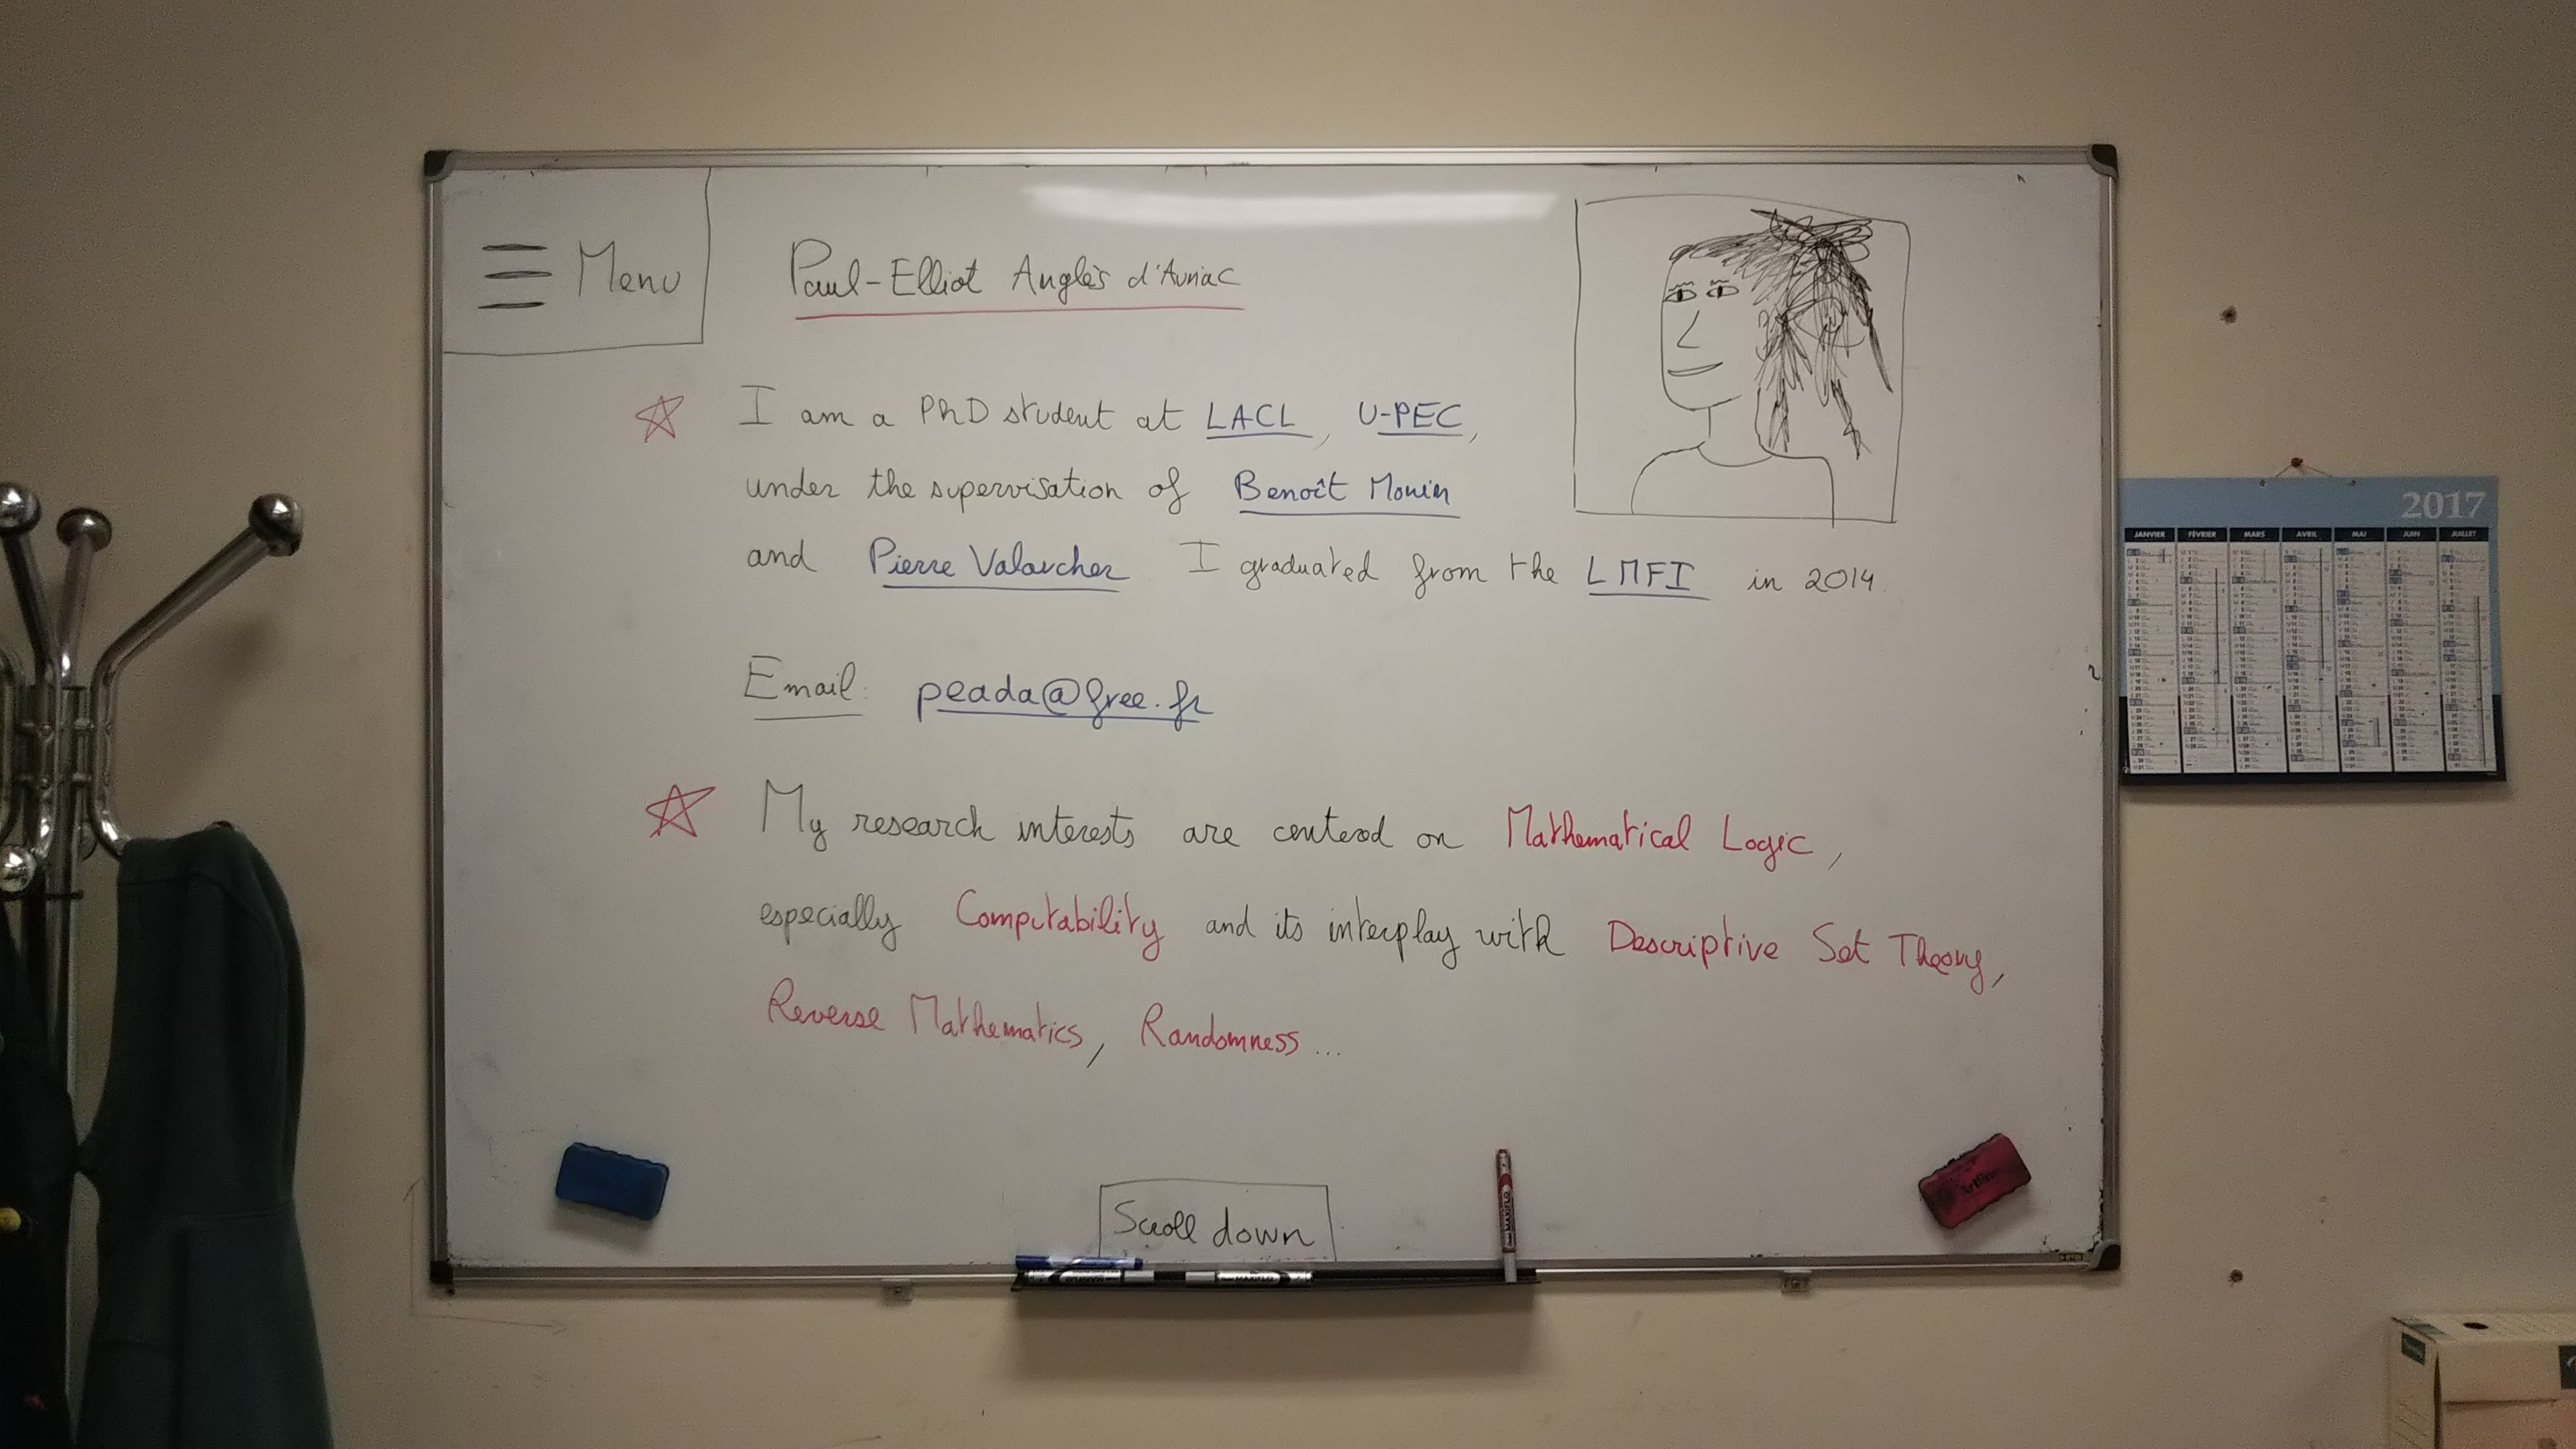 Menu
Paul-Elliot Anglès d'Auriac
I am a PhD student at LACL, U-PEC,
under the supervisation of Benoît Monin
and Pierre Valarcher I graduated from the LMFI in 2014
Email: peada@free.fr
My research interests are centered on Mathematical Logic,
especially Computability and its interplay with Descriptive Set Theory,
Reverse Mathematics, Randomness...
Scroll down
2017
JANVIER FÉVRIER MARS AVRIL MAI JUIN JUILLET
Artline
MAXIFLO
MAXIFLO